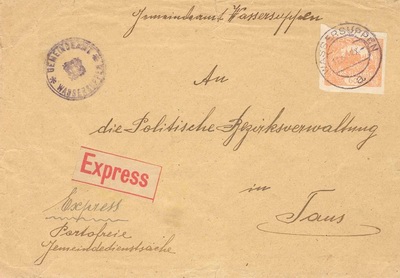 Gemeindeamt Wassersuppen
GEMEINDEAMT
WASSERSUPPEN
An
die Politische Bezirksverwaltung
Express
in
Taus
Express
Portofreie
Gemeindedienstsache